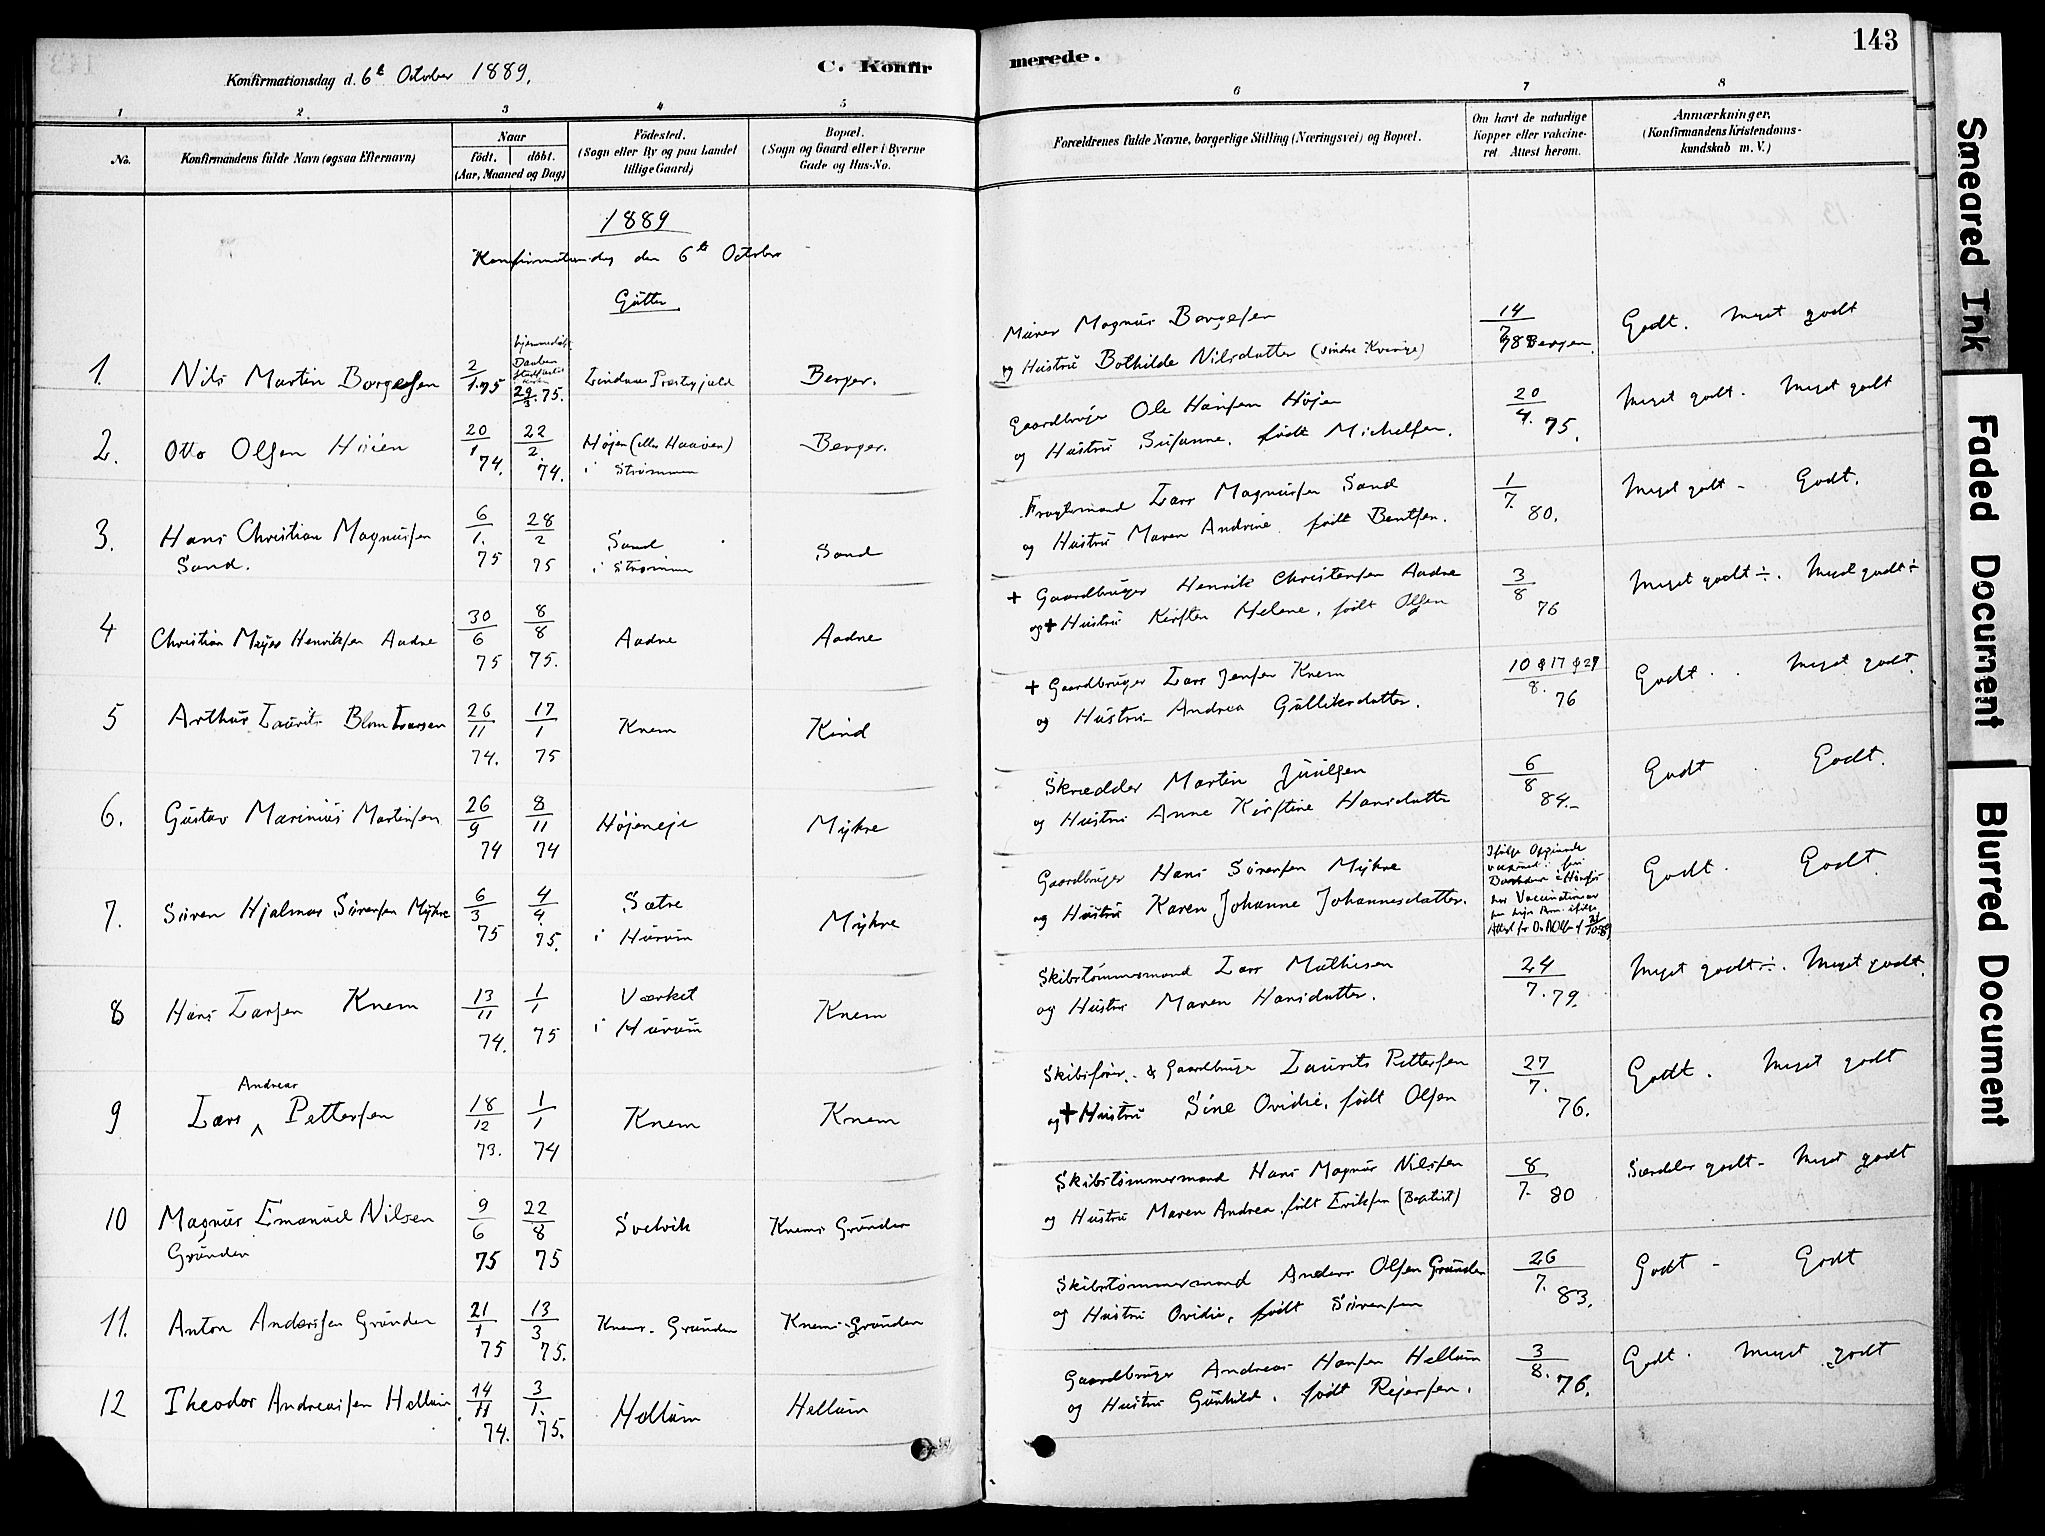 143
Konfirmationsdag d. 6te October 1889.
C. Konfirmerede.
1 2. 3 4 5 6 7 8
No.
Konfirmandens fulde Navn (ogsaa Efternavn)
Naar
født. døbt.
(Aar, Maaned og Dag)
Fødested.
(Sogn eller By og paa Landet
tillige Gaard)
Bopæl.
(Sogn og Gaard eller i Byerne
Gade og Hus-No.
Forældrenes fulde Navne, borgerlige Stilling (Næringsvei) og Bopæl.
Om havt de naturlige
Kopper eller vakcine-
ret. Attest herom.
Anmærkninger.
(Konfirmandens Kristendoms-
kundskab m. V.)
1889
Konfirmationsdag den 6te October
Gutter
1. Nils Martin Borgersen 2/1. 75 29/3. 75. Lindaas Præstegjeld Berger.
Murer Magnus Borgesen
og Hustru Bothilde Nilsdatter
14/7 Bergen. Godt. Meget godt
2. Otto Olsen Höien 20/1 74. 22/2. 74. Højen (eller Haaven)
i Strømmen Berger.
Gaardbruger Ole Hansen Højen
og Hustru Susanne, født Michelsen.
20/4. 75. Meget godt. Meget godt
3. Hans Christian Magnussen
Sand. 6/1. 75 28/2 75 Sand
i Strømmen Sand
Fragtemand Lars Magnussen Sand
og Hustru Maren Andrine, født Bentsen.
1/7. 80. Meget godt - Godt.
4 Christian Meyer Henriksen Aadne 30/6 75 8/8 75. Aadne Aadne
+ Gaardbruger Henrik Christensen Aadne
og + Hustru Kirsten Helene, født Olsen
3/8 76 Meget godt ÷. Meget godt ÷
5 Arthur Laurits Blom Larsen 26/11 74. 17/1 75 Knem Kind
+ Gaardbruger Lars Jensen Knem
og Hustru Andrea Gulliksdatter.
10 & 17 & 21/8. 76 Godt. Meget godt.
6. Gustav Marinius Martinsen 26/9 74 8/11 74 Højeneje Mykre
Skrædder Martin Juulsen
og Hustru Anne Kirstine Hansdatter
6/8 84. Godt. Godt.
7. Sören Hjalmar Sörensen Mykre 6/3 75 4/4. 75. Sætre
i Hurum Mykre
Gaardbruger Hans Sörensen Mykre
og Hustru Karen Johanne Johannesdatter.
Ifølge Opgivende
Godt. Godt.
8 Hans Larsen Knem 13/11 74. 1/1 75 Værket
i Hurum Knem
Skibstømmermand Lars Mathisen
og Hustru Maren Hansdatter.
24/7. 79. Meget godt ÷. Meget godt.
9 Lars Andreas Pettersen 18/12 73. 1/1 74 Knem Knem
Skibsfører & Gaardbruger Laurits Pettersen
og + Hustru Sine Ovidie, født Olsen
27/7. 76. Godt. Meget godt
10 Magnus Emanuel Nilsen
Grunden 9/6 75 22/8 75 Svelvik Knems Grunden
Skibstømmermand Hans Magnus Nilsen
og Hustru Maren Andrea, født Eriksen (Baptist)
8/7. 80 Særdeles godt - Meget godt
11. Anton Andersen Grunden 21/1 75 13/3 75. Knems-Grunden Knems-Grunden
Skibstømmermand Anders Olsen Grunden
og Hustru Ovidie, født Sörensen
26/7. 83. Godt - Godt
12 Theodor Andreassen Hellum 14/11 74. 3/1. 75. Hellum Hellum
Gaardbruger Andreas Hansen Hellum
og Hustru Gunhild, født Rejersen.
3/8. 76. Godt. Meget godt
Smeared Ink
Faded Document
Blurred Document